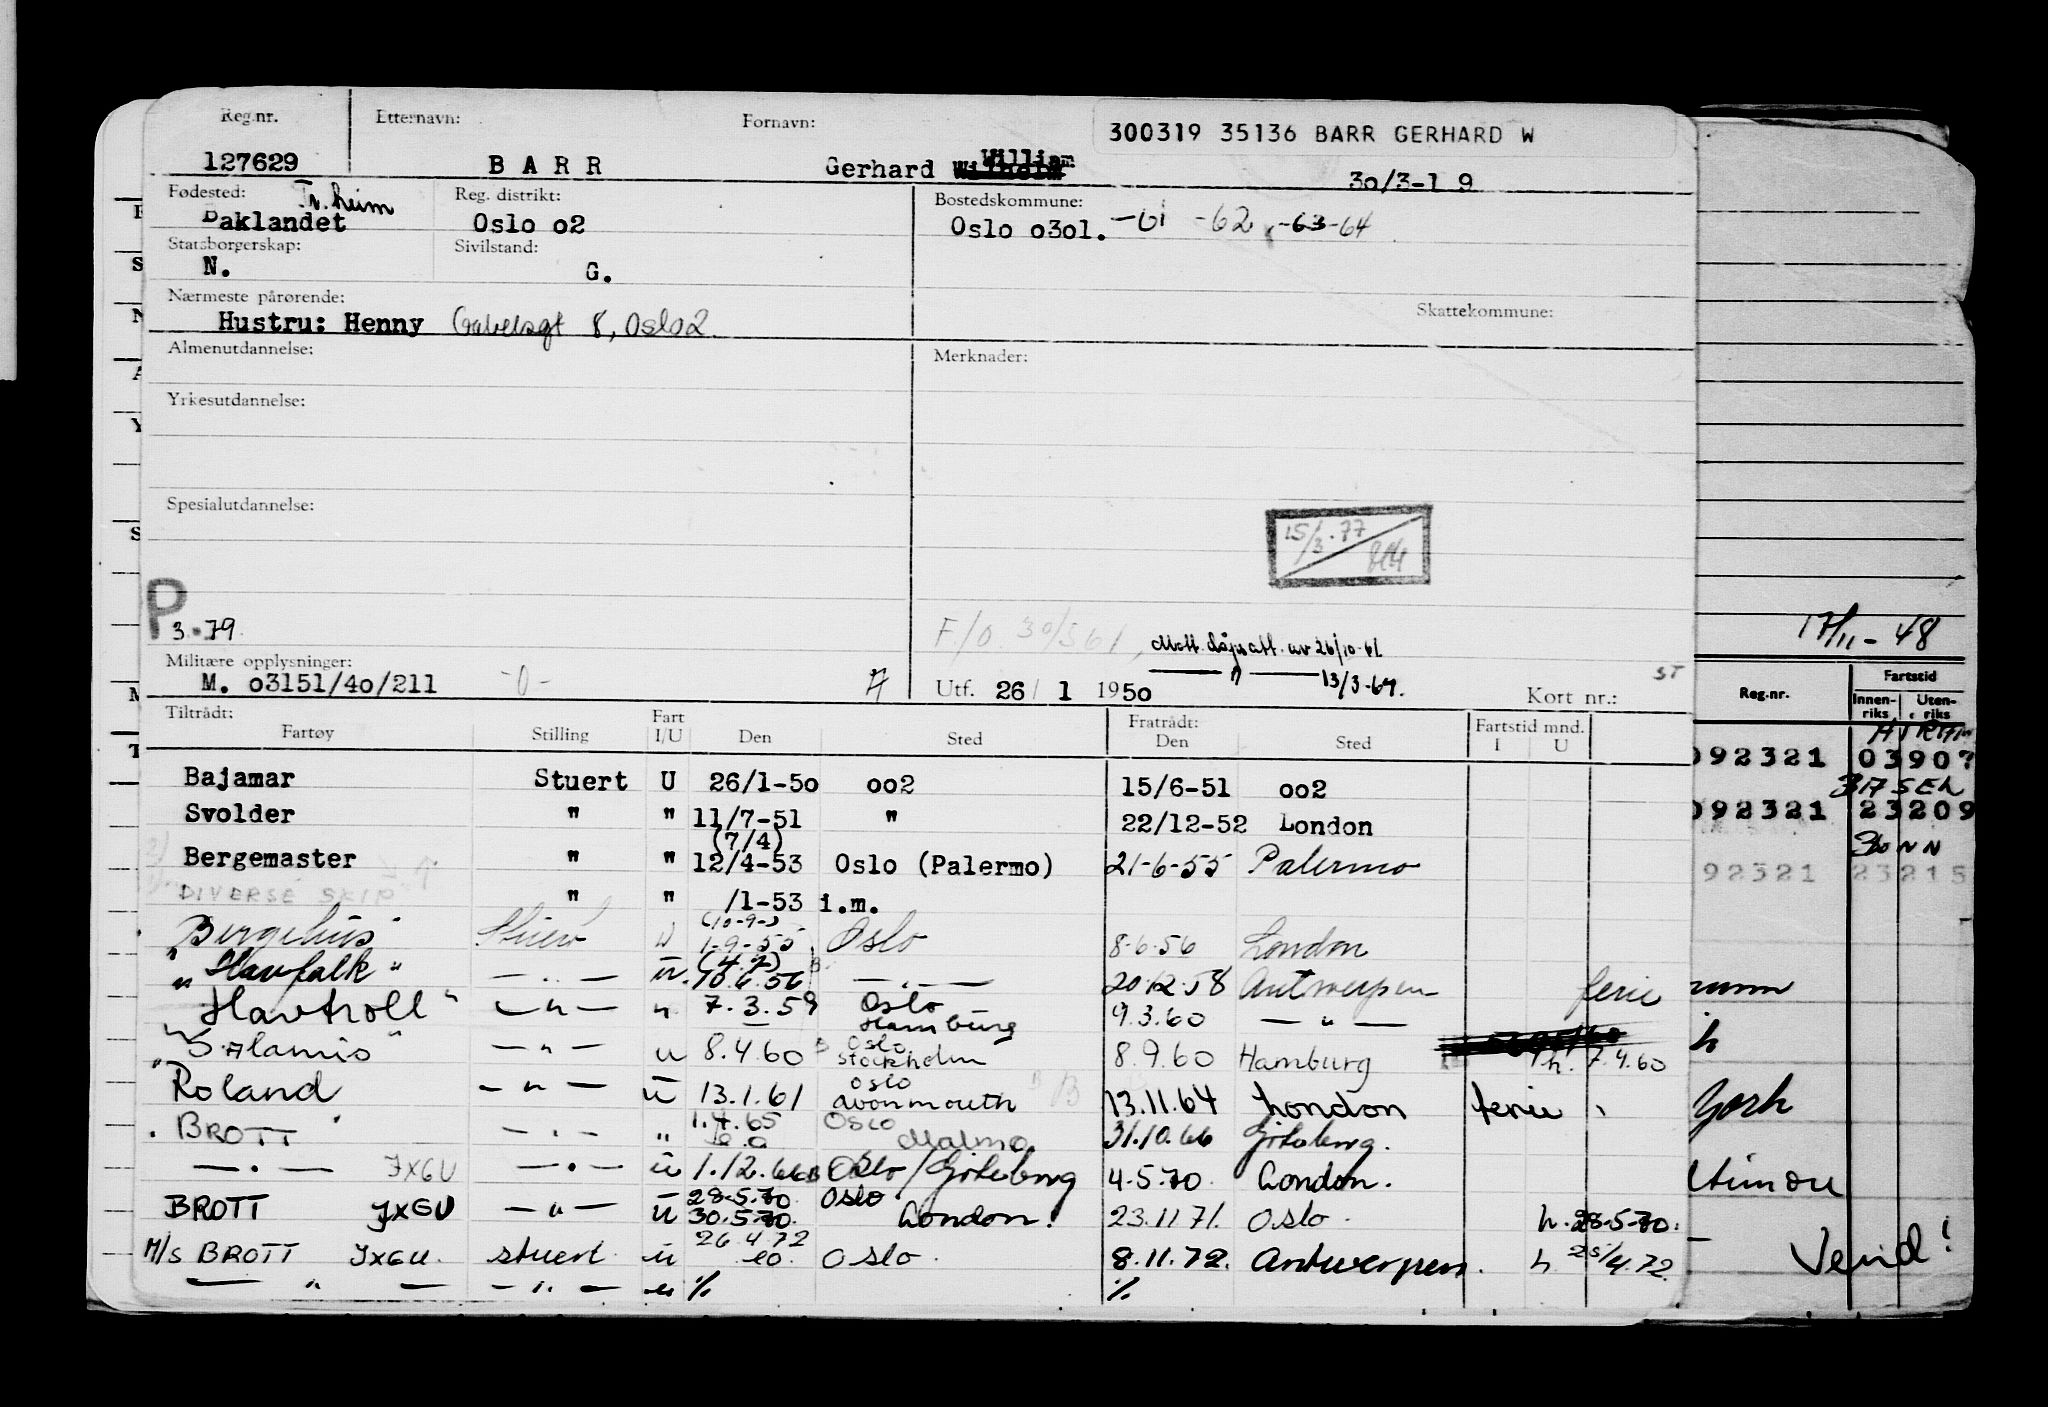 Reg.nr. Etternavn: Fornavn: 300319 35136 BARR GERHARD W
127629 B A R R Gerhard Wilhelm William 3o/3-1 9
Fødested: Tr.heim Reg. distrikt: Bostedskommune:
Baklandet Oslo o2 Oslo o3o1. -61 -62, -63-64
Statsborgerskap: Sivilstand:
N. G.
Nærmeste pårørende: Skattekommune:
Hustru: Henny Gabelsgt 8, Oslo 2.
Almenutdannelse: Merknader:
Yrkesutdannelse:
Spesialutdannelse:
15/3.77
P
3.79.
F/O 30/5 61, Mott. dåpsatt. av 26/10-61.
17/11-48
Militære opplysninger:
M. o3151/4o/211 -0-
— " — 13/3-64.
Utf. 26/ 1 195o Kort nr.: ST
Tiltrådt: Fart Fratrådt: Fartstid mnd.
Fartøy Stilling I/U Den Sted Den Sted I U
Reg.nr. Fartstid
Innen-riks Uten-riks
Bajamar Stuert U 26/1-5o oo2 15/6-51 oo2
092321 0390?
Svolder " " 11/7-51 " 22/12-52 London
092321 23209
(7/4)
Bergemaster " " 12/4-53 Oslo (Palermo) 21-6-55 Palermo
92321 23215
DIVERSE SKIP " " /1-53 i.m.
(10-9-)
Bergehus Stuert U 1-9-55 Oslo 8-6-56 London
(4.7)
"Havfalk" — . — u. 10.6.56 — . — 20.12.58 Antwerpen ferie
"Havtroll" — " — " 7.3.59 Oslo Hamburg 9.3.60 — " —
"Salamis" — " — u 8.4.60 Oslo Stockholm 8.9.60 Hamburg h. 7.4.60
Roland — " — u 13.1.61 Oslo Avonmouth 13.11.64 London ferie York
"BROTT" — . — " 1.4.65 Oslo Malmø 31.10.66 Göteborg.
— . — JXGU — . — u 1.12.66 Oslo/Göteborg 4.5.70 London.
28.5.70 Oslo
BROTT JXGU — " — u 30.5.70. London. 23.11.71. Oslo. h. 28-5-70.
26.4.72
M/S BROTT JXGU. stuert u do. Oslo. 8.11.72. Antwerpen. h. 25/4.72.
Vend!
— " — — " — u % %